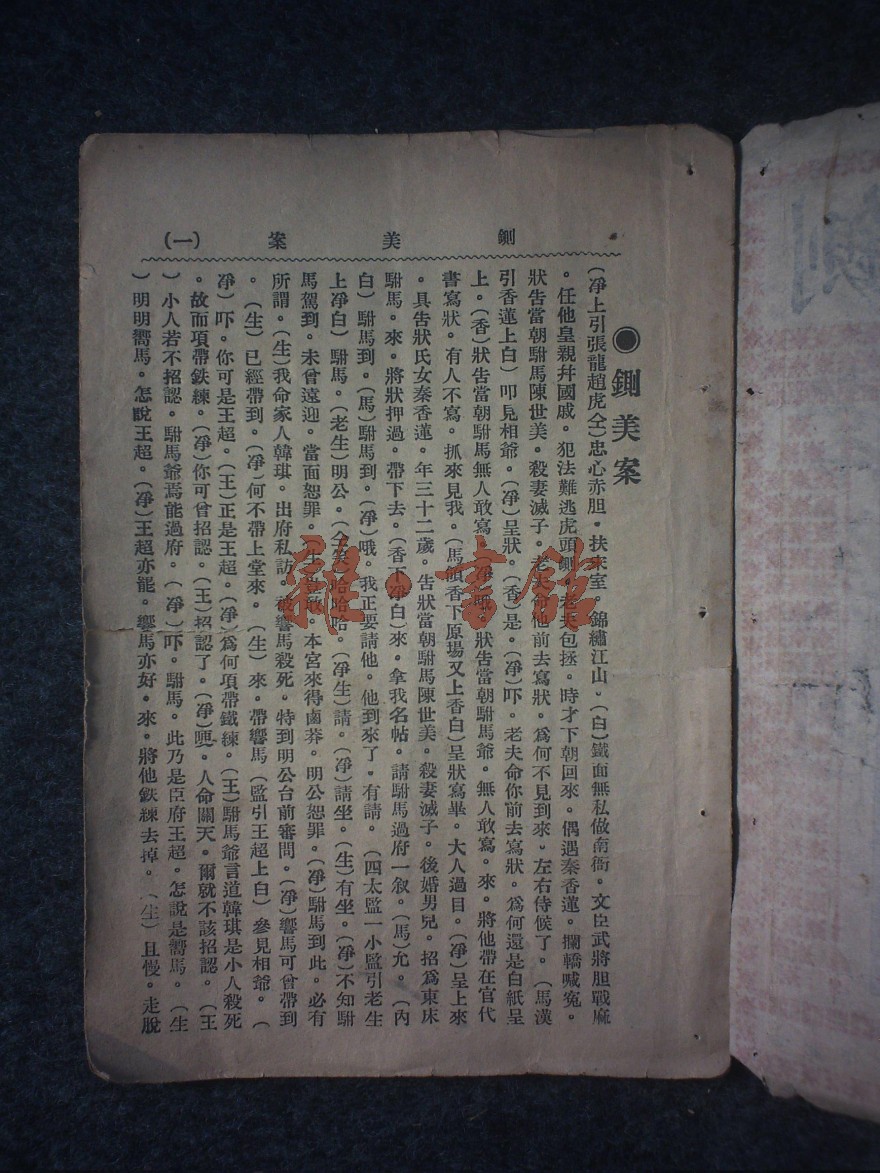 鍘美案(一)
◉鍘美案
(淨上引張龍趙虎仝)忠心赤胆。扶宋室。錦繡江山。(白)鐵面無私做南衙。文臣武將胆戰麻
。任他皇親幷國戚。犯法難逃虎頭鍘。老夫包拯。時才下朝回來。偶遇秦香蓮。攔轎喊寃。
狀告當朝駙馬陳世美。殺妻滅子。老夫命他前去寫狀。爲何不見到來。左右侍候了。(馬漢
引香蓮上白)叩見相爺。(淨)呈狀。(香)是。(淨)吓。老夫命你前去寫狀。爲何還是白紙呈
上。(香)狀告當朝駙馬無人敢寫。(淨)哦。狀告當朝駙馬爺。無人敢寫。來。將他帶在官代
書寫狀。有人不寫。抓來見我。(馬領香下原塲又上香白)呈狀寫畢。大人過目。(淨)呈上來
。具告狀氏女秦香蓮。年三十二歲。告狀當朝駙馬陳世美。殺妻滅子。後婚男兒。招爲東床
駙馬。來。將狀押過。帶下去。(香下淨白)來。拿我名帖。請駙馬過府一叙。(馬)允。(內
白)駙馬到。(馬)駙馬到。(淨)哦。我正要請他。他到來了。有請。(四太監一小監引老生
上淨白)駙馬。(老生)明公。(仝笑)哈哈哈。(淨生)請。(淨)請坐。(生)有坐。(淨)不知駙
馬駕到。未曾遠迎。當面恕罪。(生)豈敢。本宮來得鹵莽。明公恕罪。(淨)駙馬到此。必有
所謂。(生)我命家人韓琪。出府私訪。被響馬殺死。特到明公台前審問。(淨)響馬可曾帶到
。(生)已經帶到。(淨)何不帶上堂來。(生)來。帶響馬(監引王超上白)參見相爺。(
淨)吓。你可是王超。(王)正是王超。(淨)爲何項帶鐵練。(王)駙馬爺言道韓琪是小人殺死
。故而項帶鉄練。(淨)你可曾招認。(王)招認了。(淨)哽。人命關天。爾就不該招認。(王
)小人若不招認。駙馬爺焉能過府。(淨)吓。駙馬。此乃是臣府王超。怎說是嚮馬。(生
)明明嚮馬。怎說王超。(淨)王超亦罷。響馬亦好。來。將他鉄練去掉。(生)且慢。走脫
雜·書館
鍘